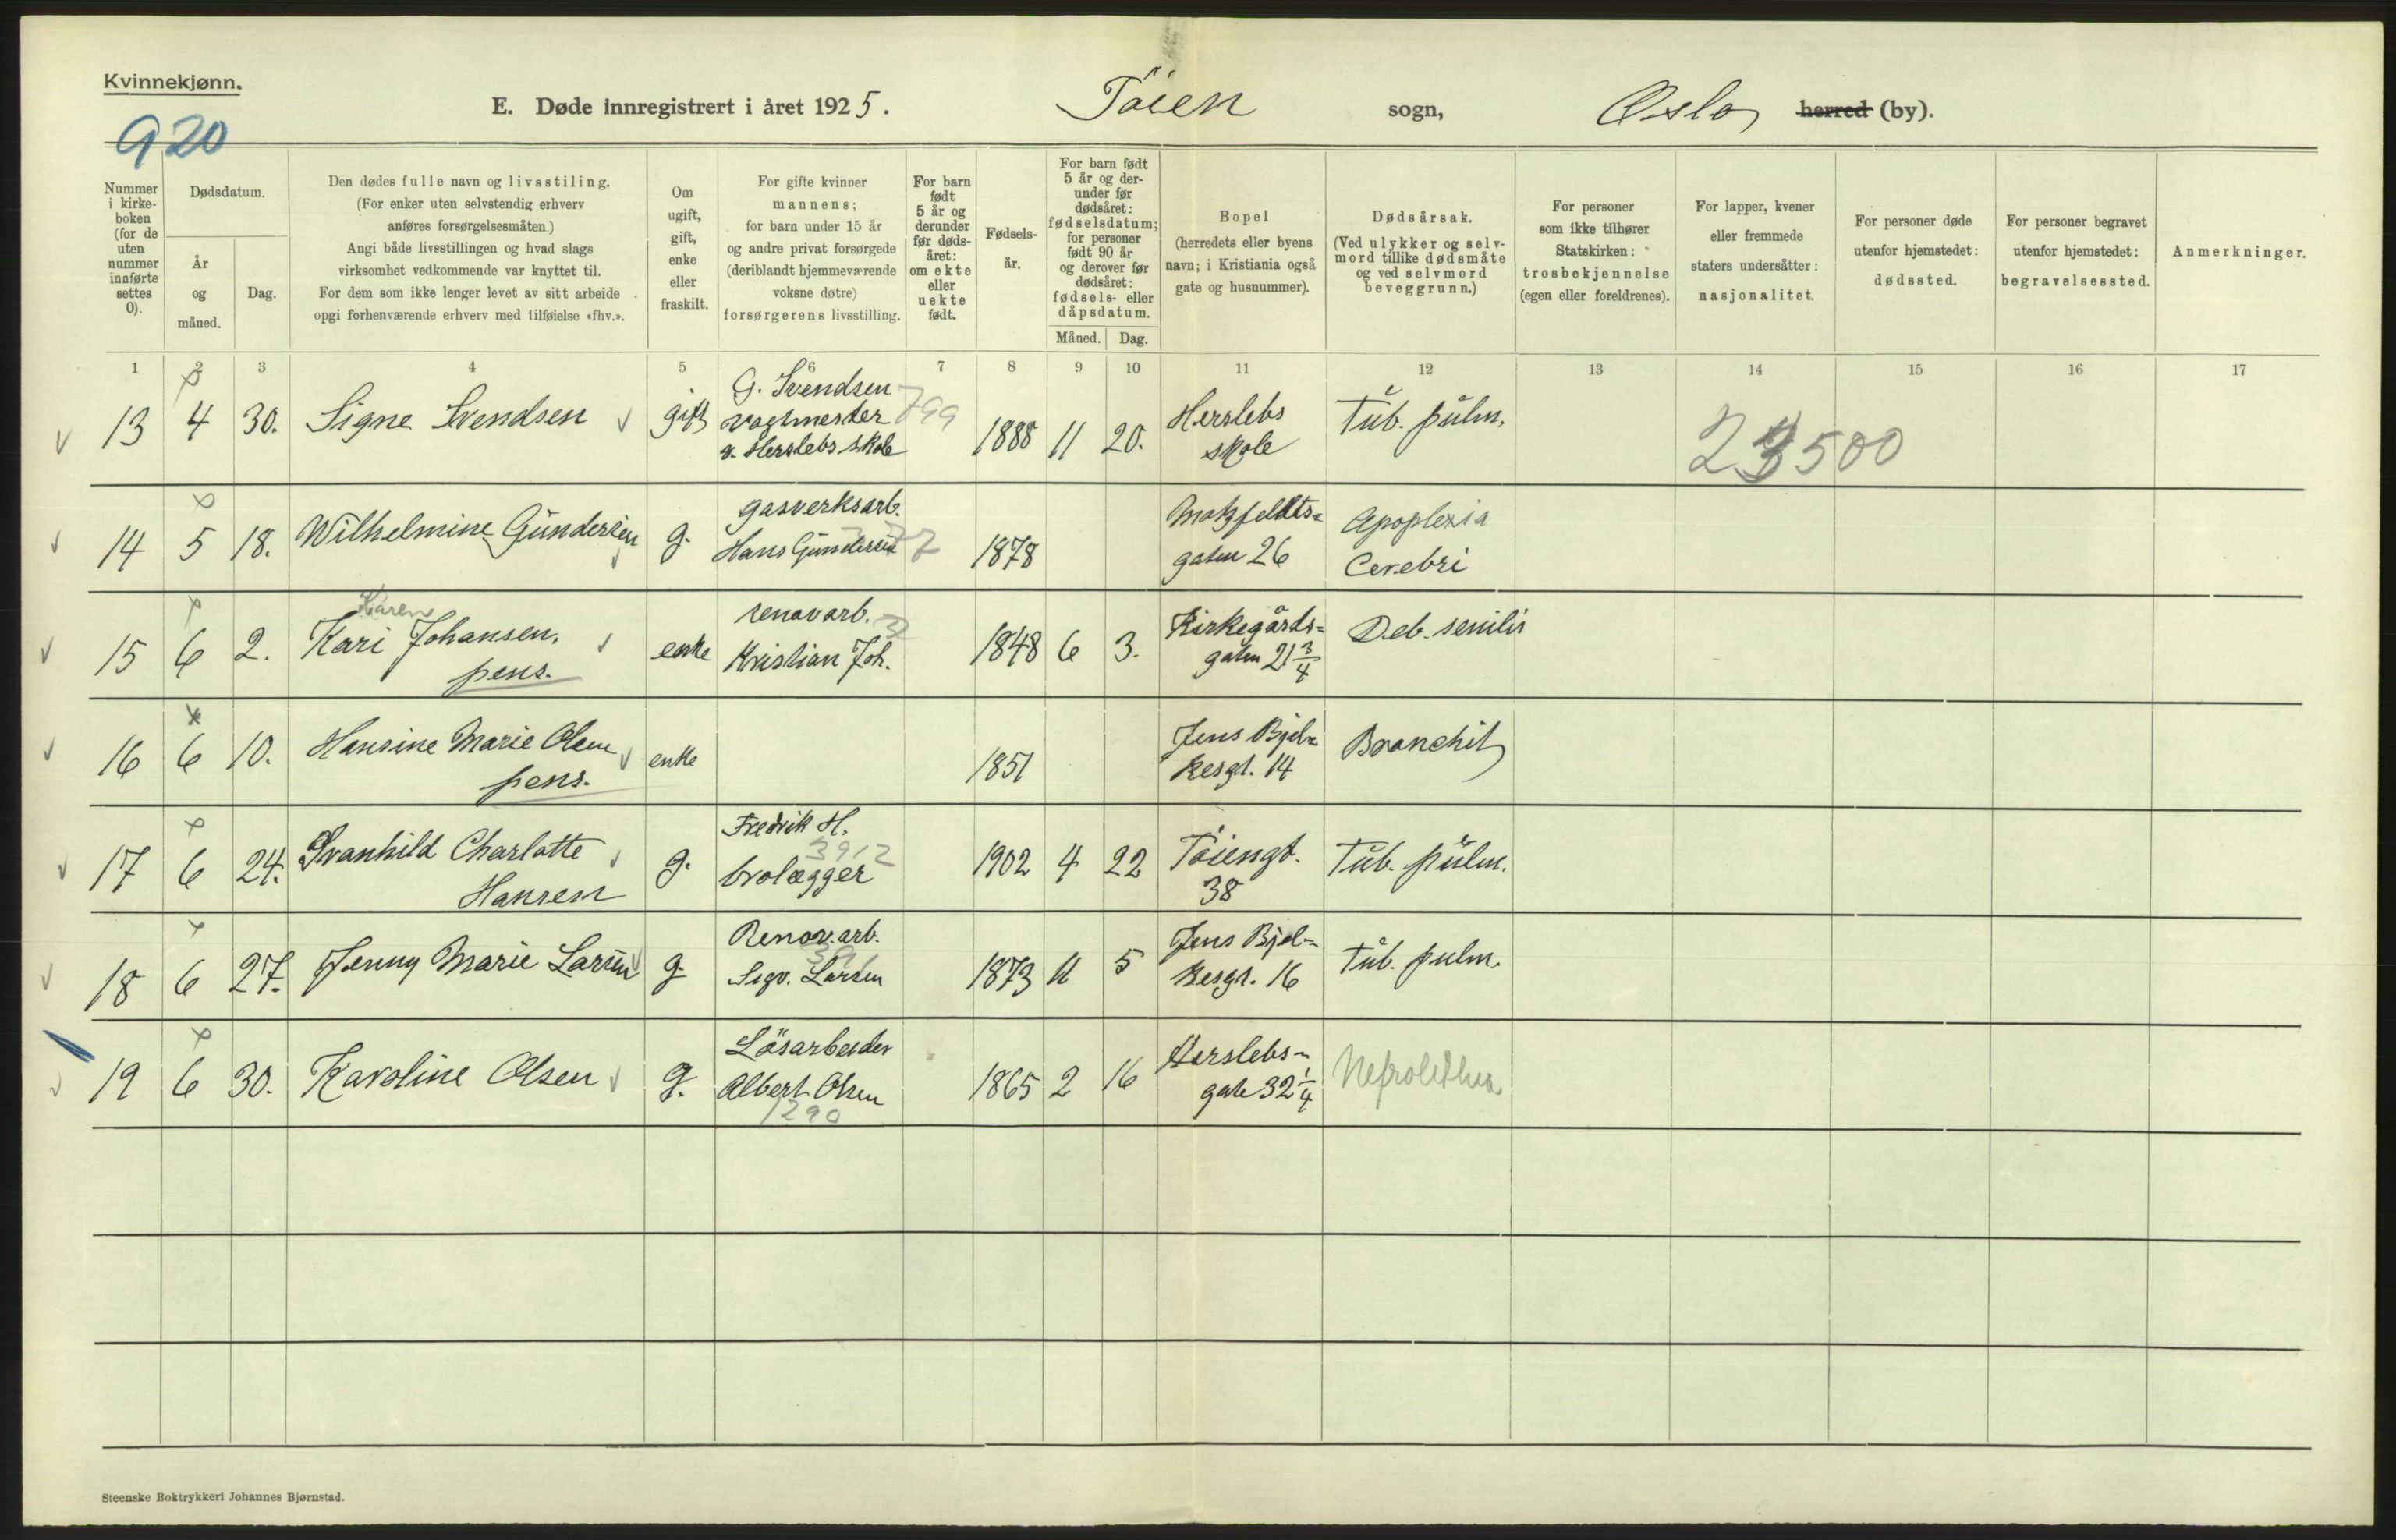 Kvinnekjønn.
E. Døde innregistrert i året 1925. Töien sogn, Oslo herred (by).
920
Nummer i kirke-boken (for de uten nummer innførte settes 0).
Dødsdatum.
År og måned.
Dag.
Den dødes fulle navn og livsstiling.
(For enker uten selvstendig erhverv
anføres forsørgelsesmåten.)
Angi både livsstillingen og hvad slags
virksomhet vedkommende var knyttet til.
For dem som ikke lenger levet av sitt arbeide
opgi forhenværende erhverv med tilføielse «fhv.».
Om
ugift,
gift,
enke
eller
fraskilt.
For gifte kvinner
mannens;
for barn under 15 år
og andre privat forsørgede
(deriblandt hjemmeværende
voksne døtre)
forsørgerens livsstilling.
For barn
født
5 år og
derunder
før døds-
året:
om ekte
eller
uekte
født.
Fødsels-
år.
For barn født
5 år og der-
under før
dødsåret:
fødselsdatum;
for personer
født 90 år
og derover før
dødsåret:
fødsels- eller
dåpsdatum.
Måned. Dag.
Bopel
(herredets eller byens
navn; i Kristiania også
gate og husnummer).
Dødsårsak.
(Ved ulykker og selv-
mord tillike dødsmåte
og ved selvmord
beveggrunn.)
For personer
som ikke tilhører
Statskirken:
trosbekjennelse
(egen eller foreldrenes).
For lapper, kvener
eller fremmede
staters undersåtter:
nasjonalitet.
For personer døde
utenfor hjemstedet:
dødssted.
For personer begravet
utenfor hjemstedet:
begravelsessted.
Anmerkninger.
1 2 3 4 5 6 7 8 9 10 11 12 13 14 15 16 17
13 4 30. Signe Svendsen gift G. Svendsen
vagtmester 799
v. Herslebs skole
1888 11 20. Herslebs
skole
Tub. pulm.
500
14 5 18. Wilhelmine Gundersen g. gasverksarb.
Hans Gundersen
1878 Motzfeldts=
gaten 26
Apoplexia
Cerebri
Karen
15 6 2. Kari Johansen,
pens.
enke renovarb.
Kristian Joh.
1848 6 3. Kirkegårds=
gaten 21 3/4
Deb. senilis
16 6 10. Hansine Marie Olsen
pens.
enke 1851 Jens Bjel=
kesgt. 14
Bronchit
17 6 24. Svanhild Charlotte
Hansen
g. Fredrik H.
3912
brolægger
1902 4 22 Töiengt.
38
Tub. pulm.
18 6 27. Jenny Marie Larsen g. Renov.arb.
Sigv. Larsen
1873 11 5 Jens Bjel=
kesgt. 16
Tub. pulm.
19 6 30. Karoline Olsen g. Lösarbeider
Albert Olsen
1290
1865 2 16 Herslebs-
gate 32 1/4
Steenske Boktrykkeri Johannes Bjørnstad.